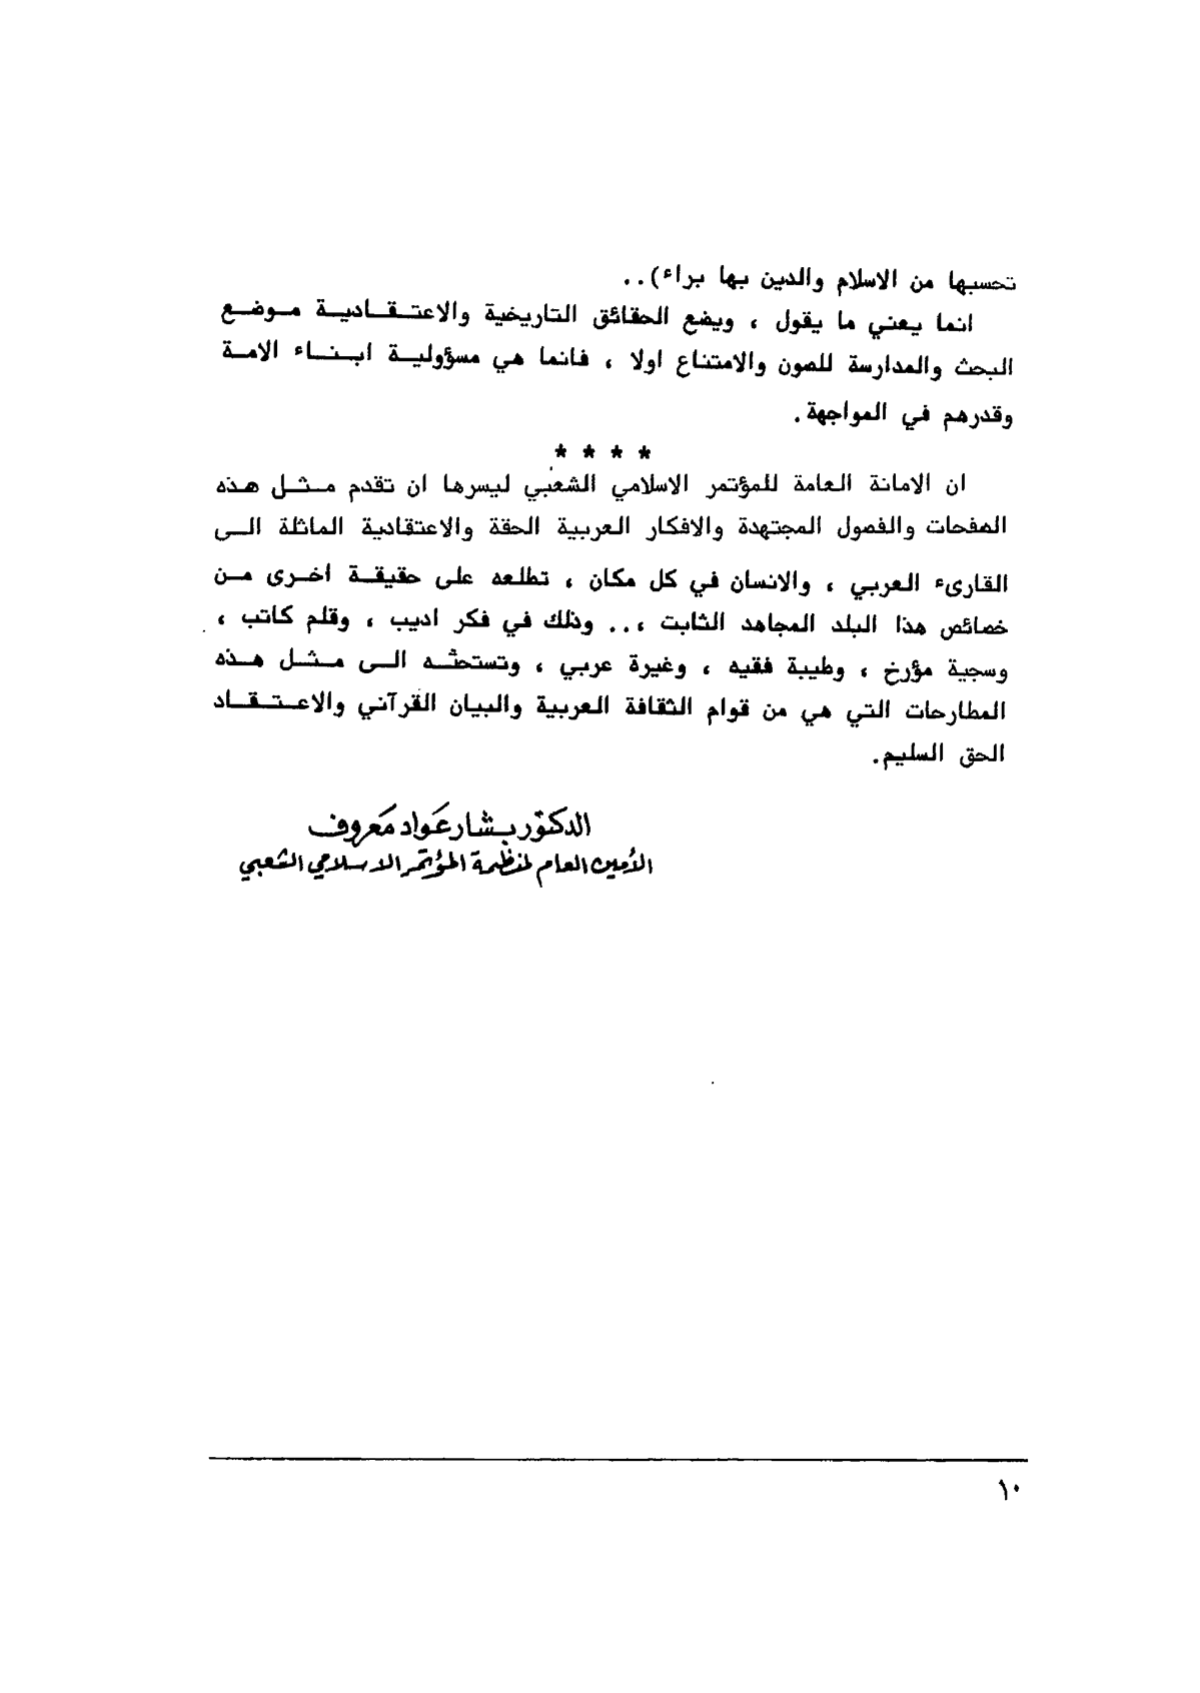 تحسبها من الاسلام والدين بها براء)..
انما يعني ما يقول ، ويضع الحقائق التاريخية والاعتقادية موضع
البحث والمدارسة للصون والامتناع اولا ، فانما هي مسؤولية ابناء الامة
وقدرهم في المواجهة.
* * * *
ان الامانة العامة للمؤتمر الاسلامي الشعبي ليسرها ان تقدم مثل هذه
الصفحات والفصول المجتهدة والافكار العربية الحقة والاعتقادية الماثلة الى
القارىء العربي ، والانسان في كل مكان ، تطلعه على حقيقة اخرى من
خصائص هذا البلد المجاهد الثابت ،.. وذلك في فكر اديب ، وقلم كاتب ،
وسجية مؤرخ ، وطيبة فقيه ، وغيرة عربي ، وتستحثه الى مثل هذه
المطارحات التي هي من قوام الثقافة العربية والبيان القرآني والاعتقاد
الحق السليم.
الدكتور بشار عواد معروف
الأمين العام لمنظمة المؤتمر الاسلامي الشعبي
١٠